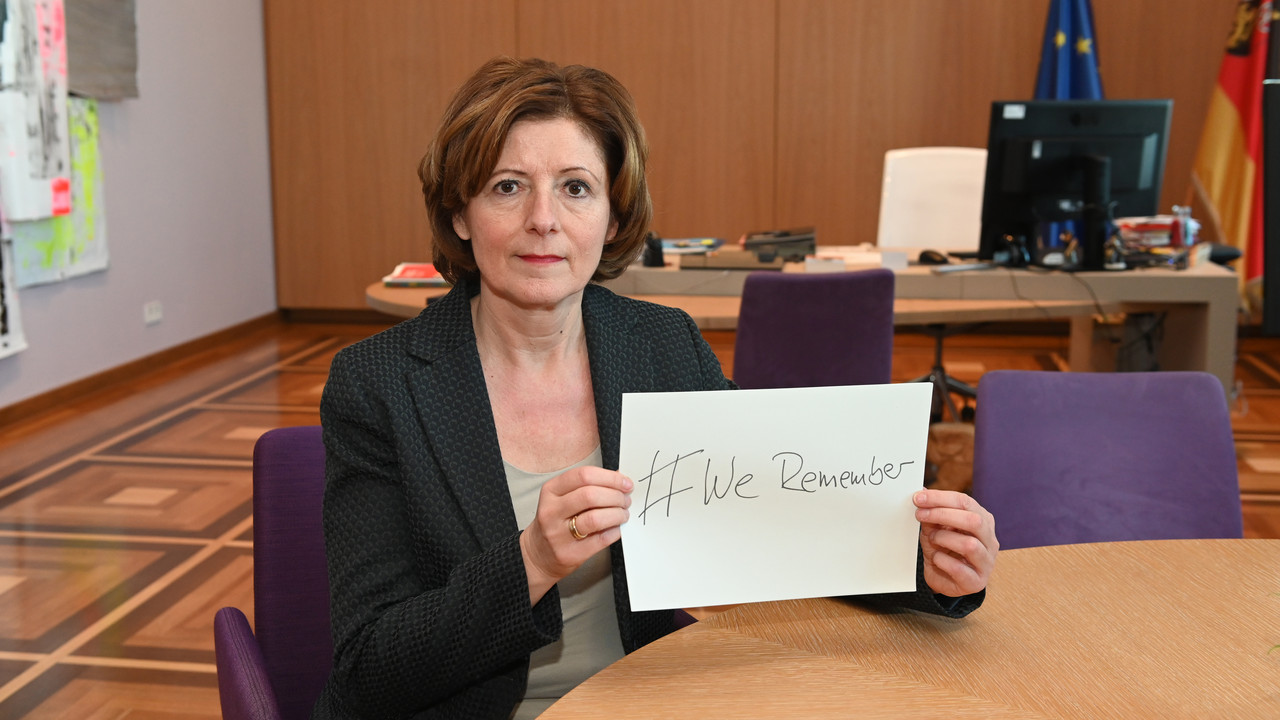 #We Remember